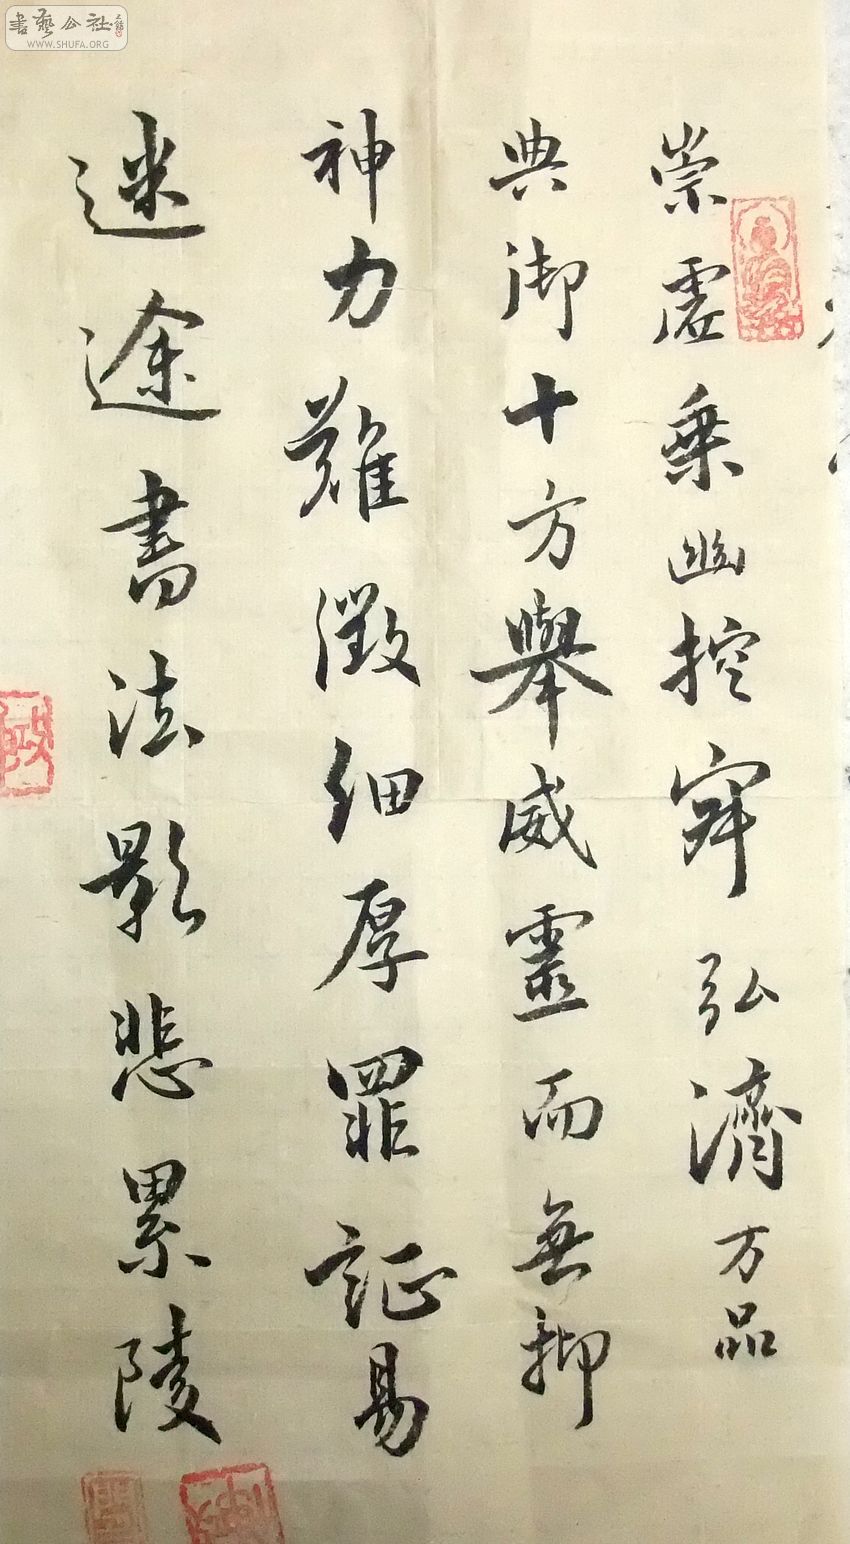 書藝公社
WWW.SHUFA.ORG
崇虛乗幽控寂弘濟万品
典御十方舉威靈而無抑
神力難徵細厚罪証易
迷途書法影悲累陵